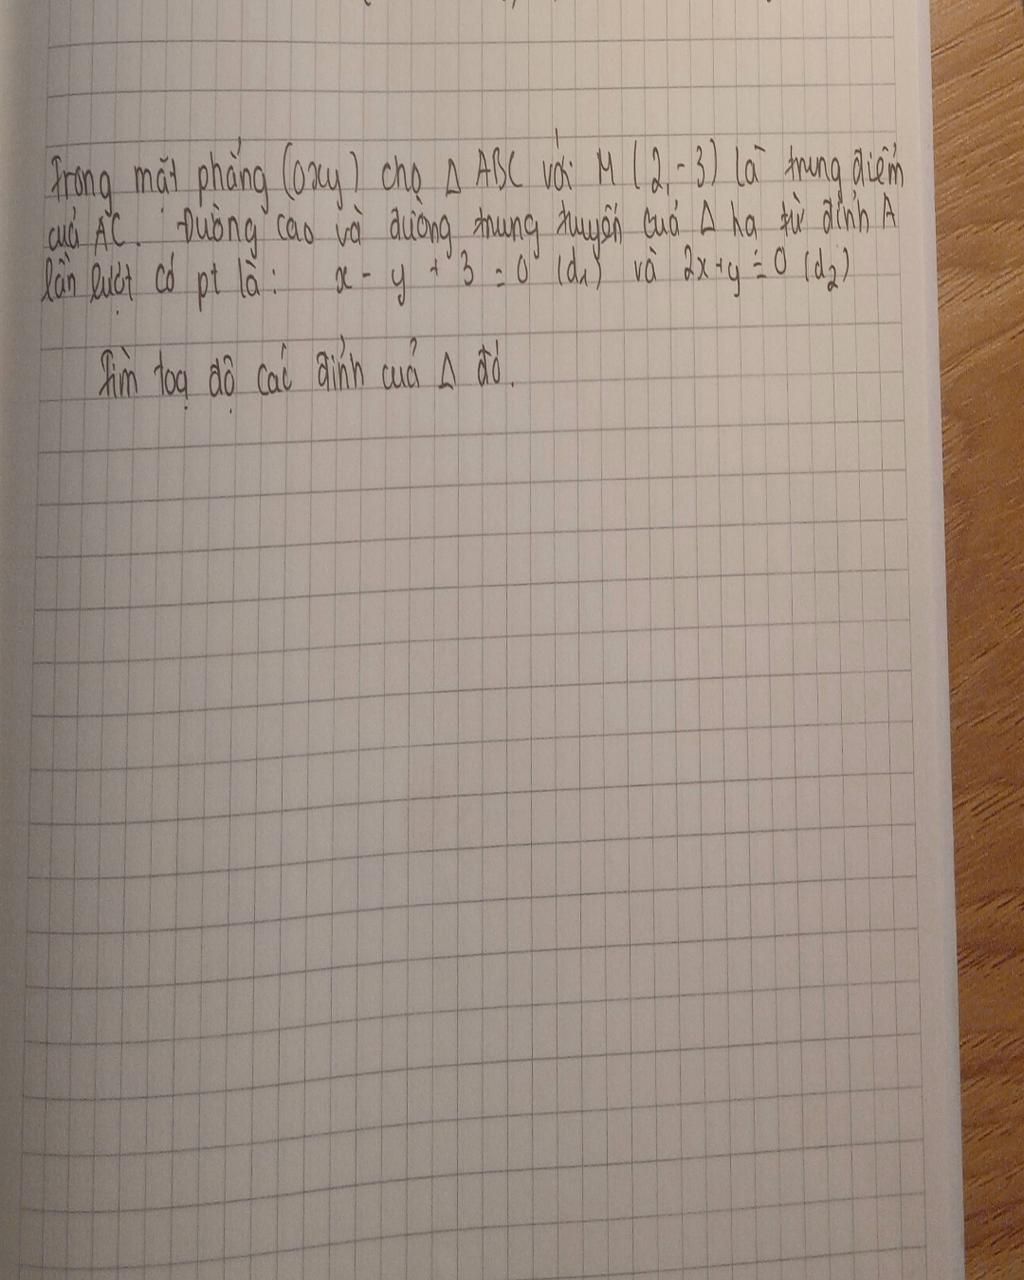 Trong mặt phẳng (oxy) cho Δ ABC với M (2,-3) là trung điểm
của AC. Đường cao và đường trung tuyến của Δ hạ từ đỉnh A
lần lượt có pt là: x - y + 3 = 0 (d₁) và 2x+y = 0 (d₂)
Tìm toạ độ các đỉnh của Δ đó.